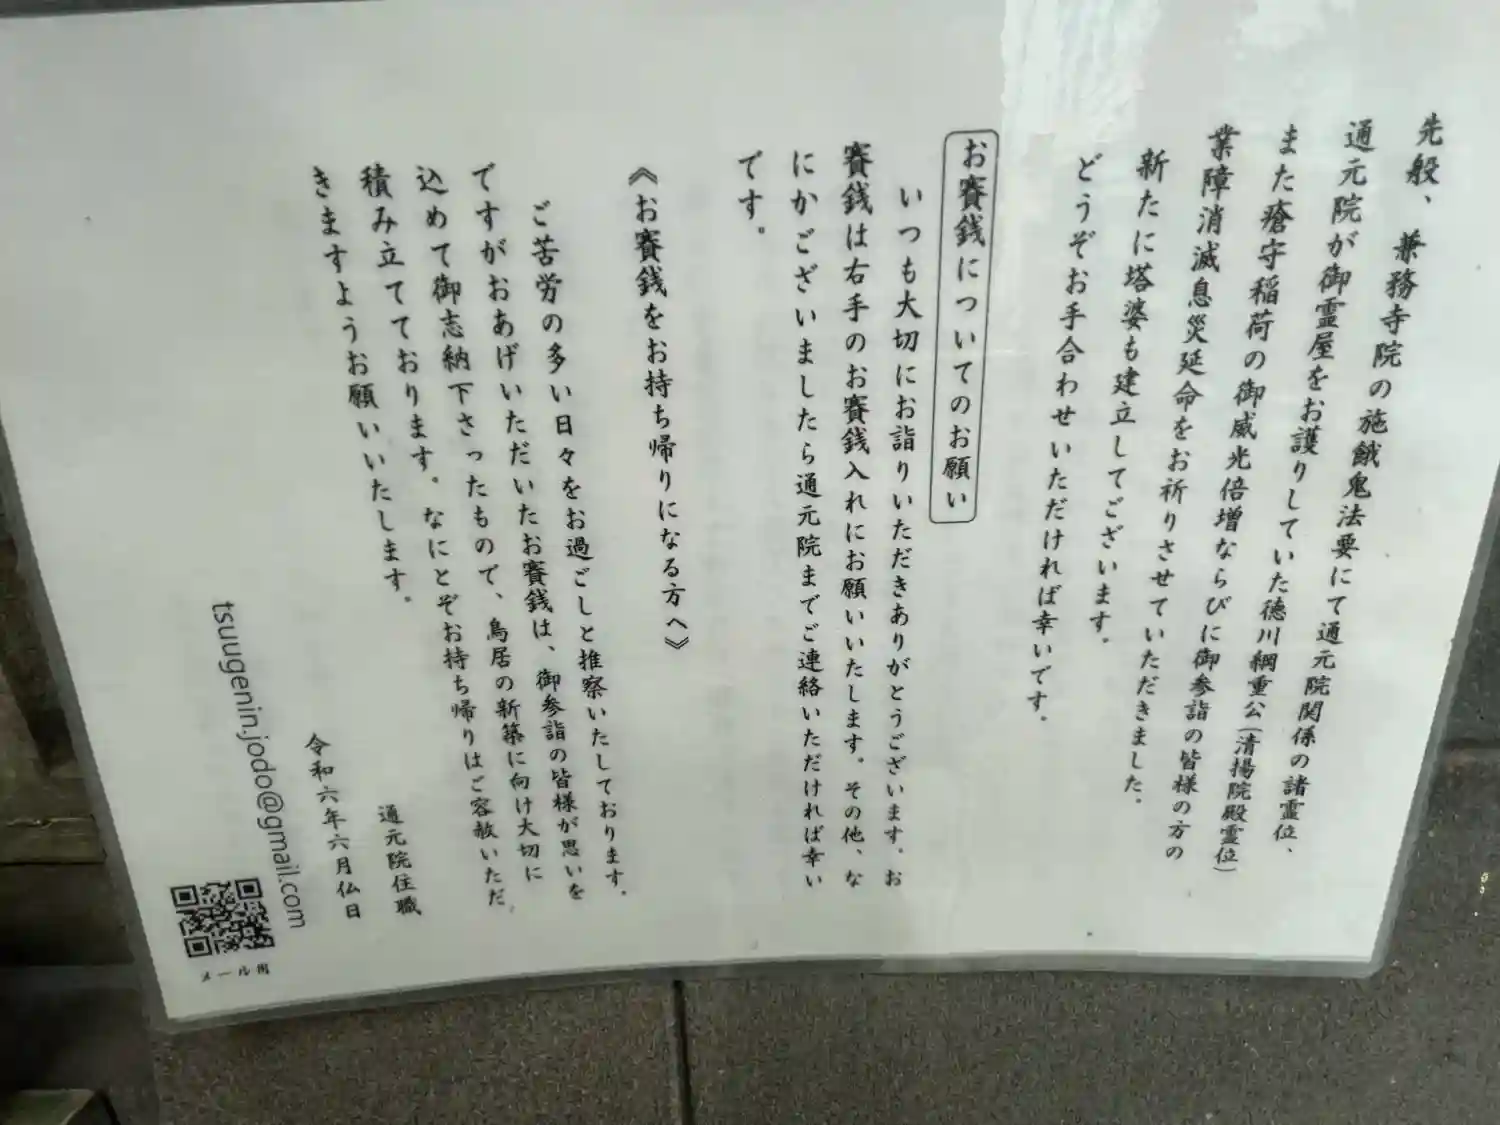 先般、兼務寺院の施餓鬼法要にて通元院関係の諸霊位、
通元院が御霊屋をお護りしていた徳川綱重公(清揚院殿霊位)
また瘡守稲荷の御威光倍増ならびに御参詣の皆様の方の
業障消滅息災延命をお祈りさせていただきました。
新たに塔婆も建立してございます。
どうぞお手合わせいただければ幸いです。
お賽銭についてのお願い
いつも大切にお詣りいただきありがとうございます。お
賽銭は右手のお賽銭入れにお願いいたします。その他、な
にかございましたら通元院までご連絡いただければ幸い
です。
《お賽銭をお持ち帰りになる方へ》
ご苦労の多い日々をお過ごしと推察いたしております。
ですがおあげいただいたお賽銭は、御参詣の皆様が思いを
込めて御志納下さったもので、鳥居の新築に向け大切に
積み立てております。なにとぞお持ち帰りはご容赦いただ
きますようお願いいたします。
通元院住職
令和六年六月仏日
tsuugenin.jodo@gmail.com
メール用